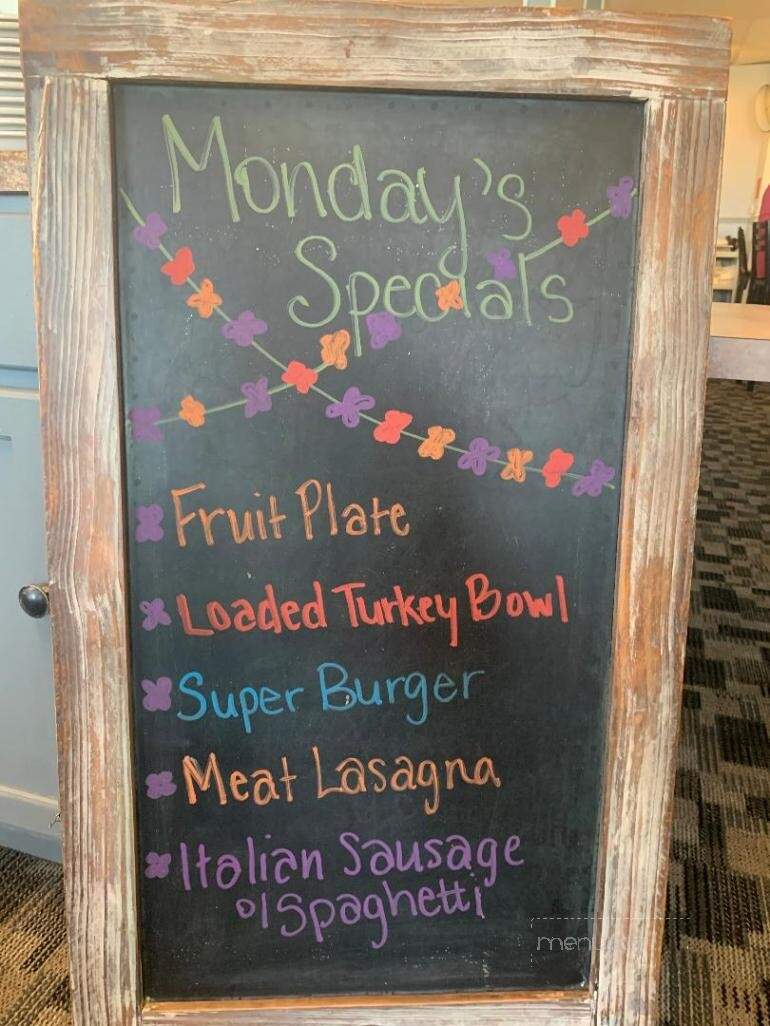 Monday's
Specials
Fruit Plate
Loaded Turkey Bowl
Super Burger
Meat Lasagna
Italian Sausage
o/Spaghetti
menu